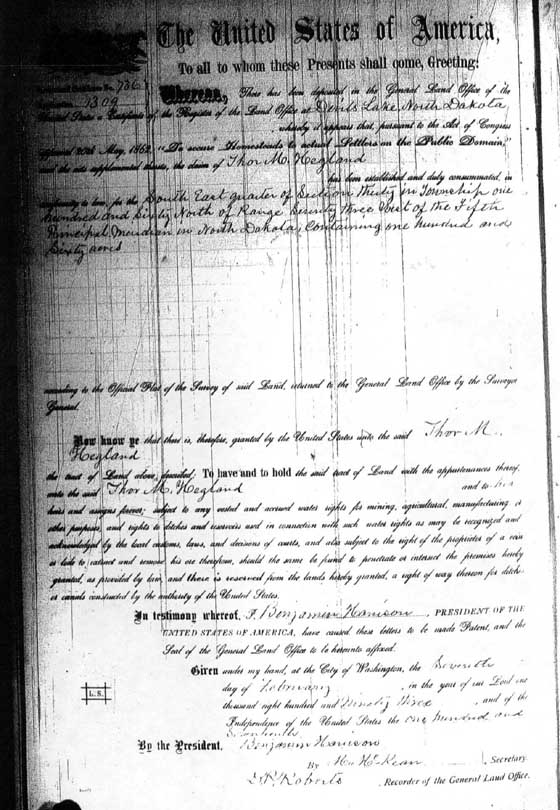 The United States of America,
To all to whom these Presents shall come, Greeting:
Certificate No. 736
1309
Whereas, There has been deposited in the General Land Office of the
United States a Certificate of the Register of the Land Office at Devils Lake North Dakota,
whereby it appears that, pursuant to the Act of Congress
approved 20th May, 1862, "To secure Homesteads to actual Settlers on the Public Domain,"
and the acts supplemental thereto, the claim of Thor M. Hegland
has been established and duly consummated, in
conformity to law, for the South East quarter of Section thirty in Township one
hundred and sixty North of Range Seventy three West of the Fifth
Principal Meridian in North Dakota, Containing one hundred and
Sixty acres
according to the Official Plat of the Survey of said Land, returned to the General Land Office by the Surveyor
General.
Now know ye that there is, therefore, granted by the United States unto the said Thor M.
Hegland
the tract of Land above described; To have and to hold the said tract of Land with the appurtenances thereof,
unto the said Thor M. Hegland and to his
heirs and assigns forever; subject to any vested and accrued water rights for mining, agricultural, manufacturing or
other purposes, and rights to ditches and reservoirs used in connection with such water rights as may be recognized and
acknowledged by the local customs, laws, and decisions of courts, and also subject to the right of the proprietor of a vein
or lode to extract and remove his ore therefrom, should the same be found to penetrate or intersect the premises hereby
granted, as provided by law, and there is reserved from the lands hereby granted, a right of way thereon for ditches
or canals constructed by the authority of the United States.
In testimony whereof, I, Benjamin Harrison, PRESIDENT OF THE
UNITED STATES OF AMERICA, have caused these letters to be made Patent, and the
Seal of the General Land Office to be hereunto affixed.
Given under my hand, at the City of Washington, the Seventh
day of February, in the year of our Lord one
L.S.
thousand eight hundred and Ninety three, and of the
Independence of the United States the one hundred and
Seventeenth
By the President, Benjamin Harrison
By M. McKean, Secretary.
Roberts, Recorder of the General Land Office.